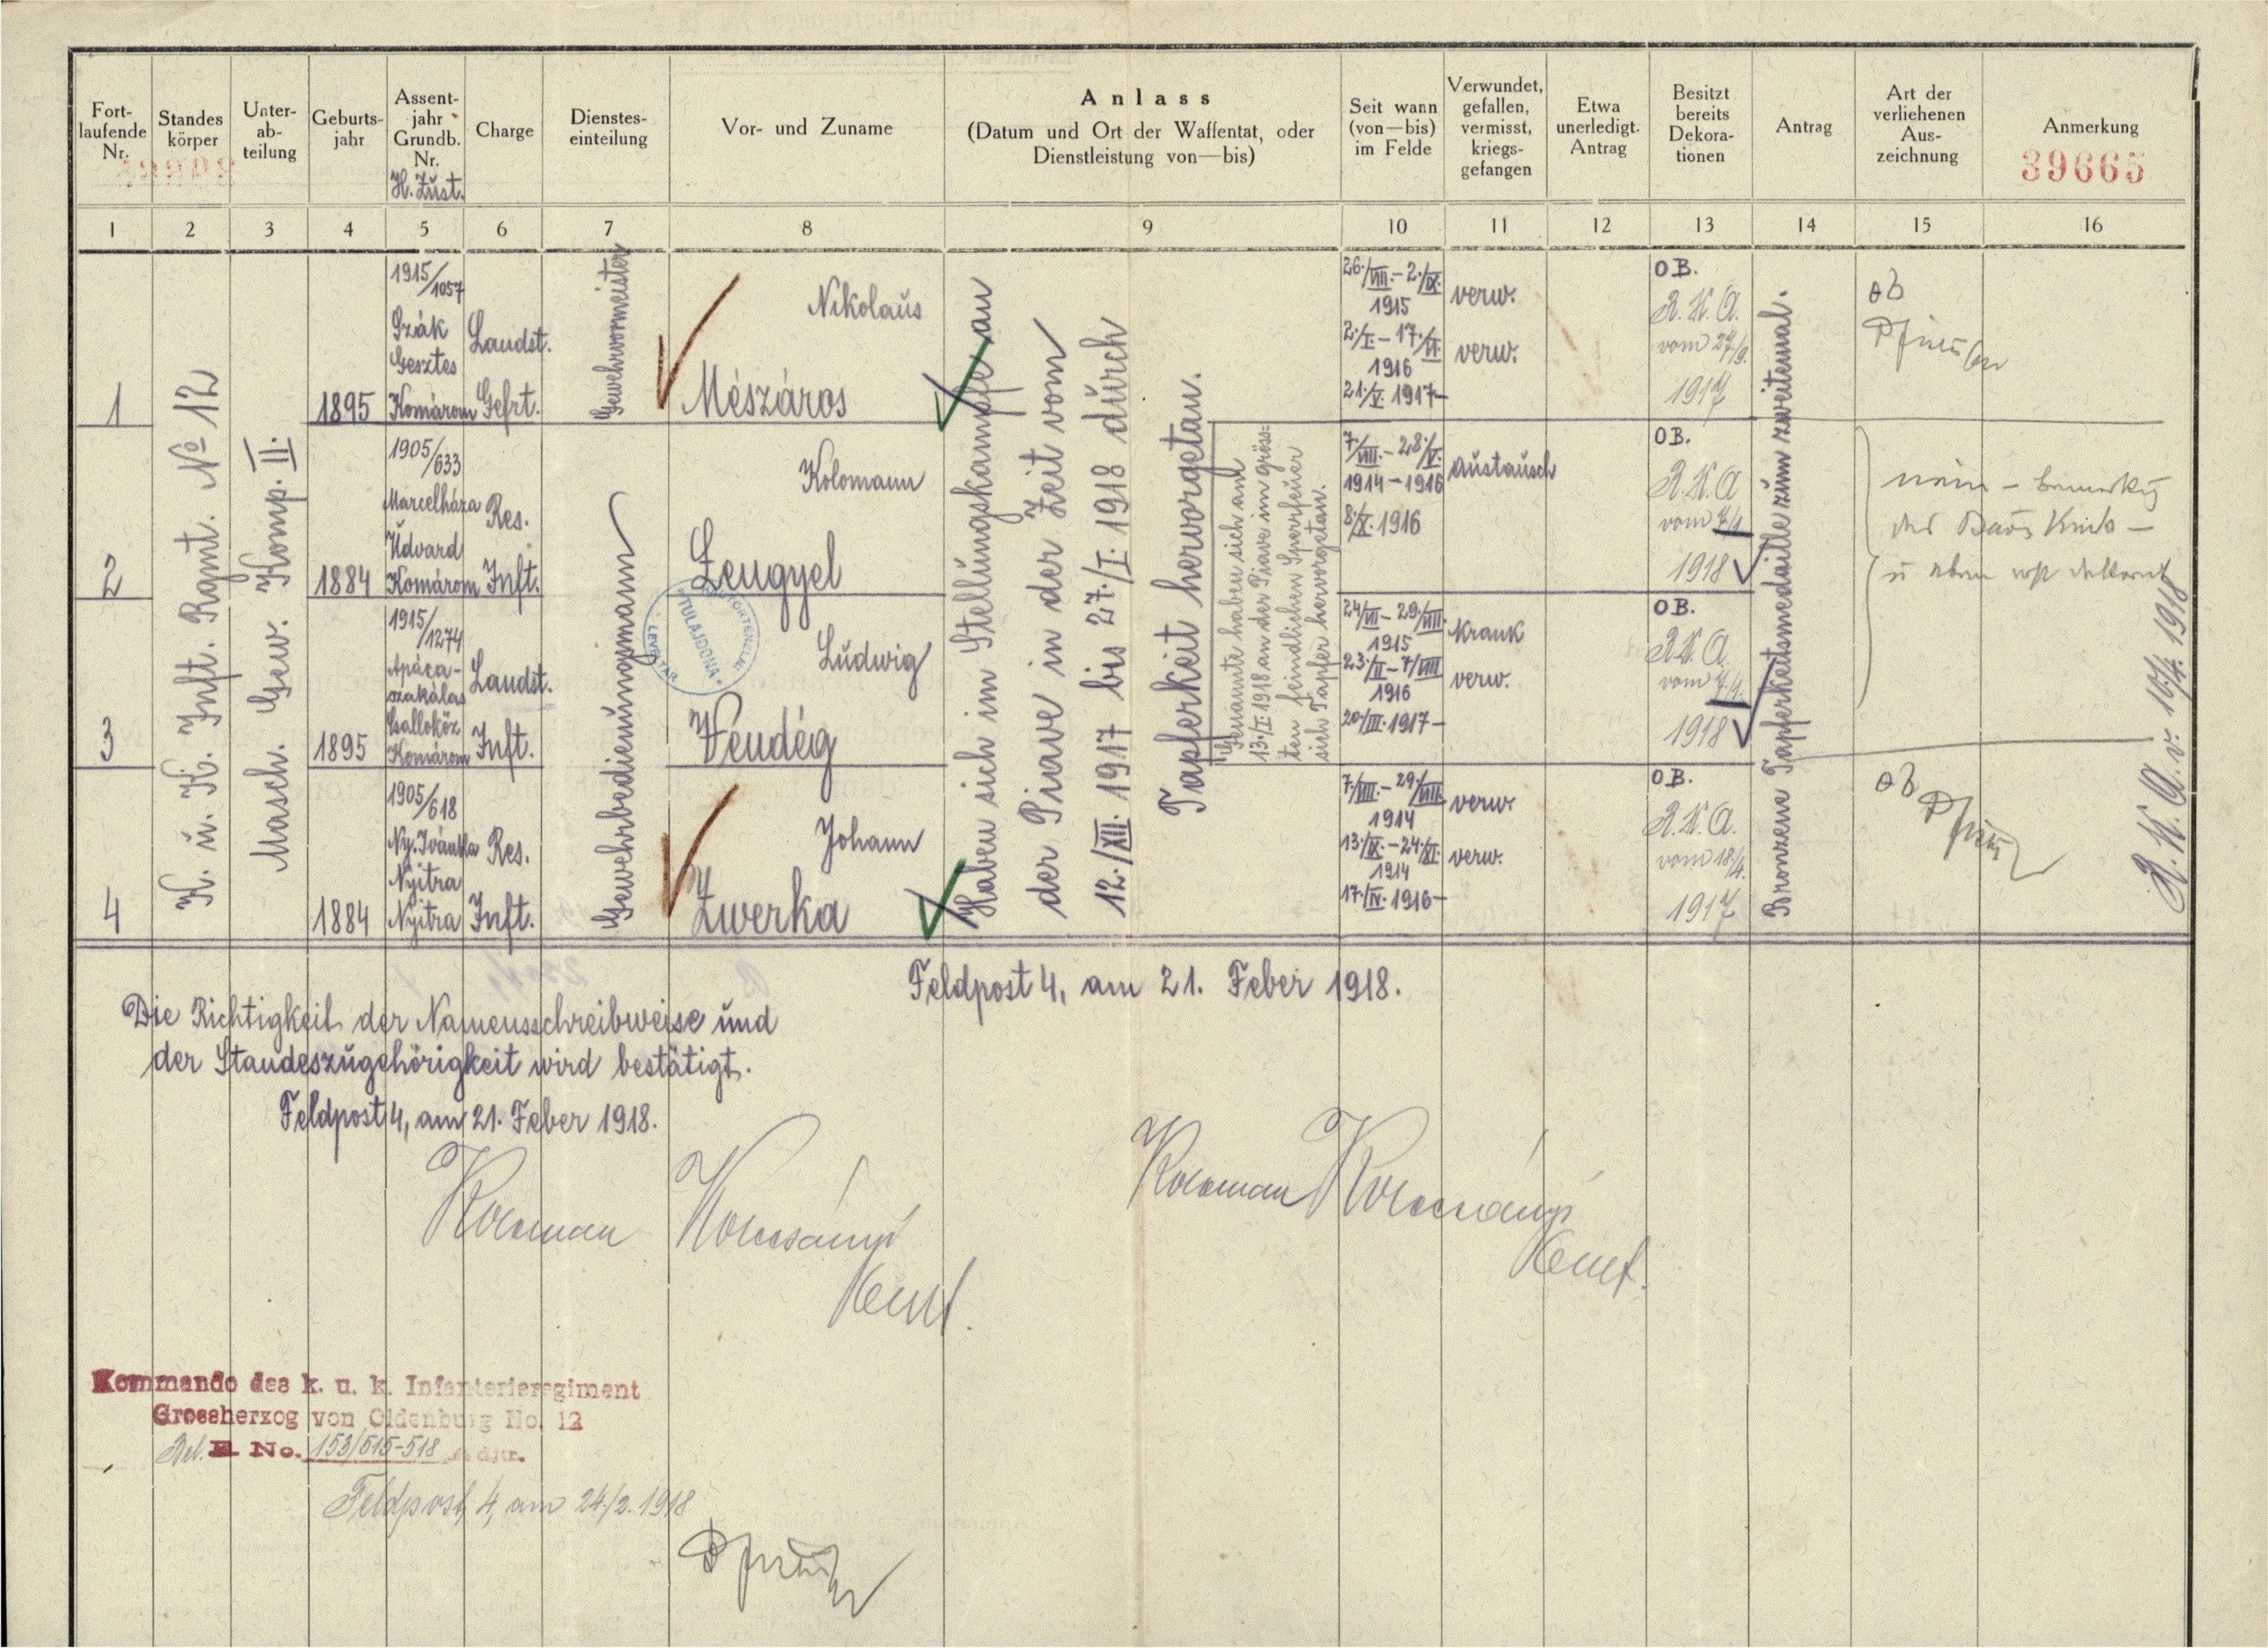 Fort-
laufende
Nr.
Standes
körper
Unter-
ab-
teilung
Geburts-
jahr
Assent-
jahr
Grundb.
Nr.
H. Züst.
Charge
Dienstes-
einteilung
Vor- und Zuname
Anlass
(Datum und Ort der Waffentat, oder
Dienstleistung von—bis)
Seit wann
(von—bis)
im Felde
Verwundet,
gefallen,
vermisst,
kriegs-
gefangen
Etwa
unerledigt.
Antrag
Besitzt
bereits
Dekora-
tionen
Antrag
Art der
verliehenen
Aus-
zeichnung
Anmerkung
39665
1 2 3 4 5 6 7 8 9 10 11 12 13 14 15 16
K. u. K. Inft. Rgmt. No 12
Masch. Gew. Komp. II.
1
1895
1915/1057
Szák
Gesztes
Komárom
Landst.
Gefrt.
Gewehrvormeister
Nikolaus
Mészáros
26./VIII.-2./IX.
1915
2./I.-17./VI.
1916
21./V. 1917-
verw.
verw.
OB.
R.K.A.
vom 27/9.
1917
2
1884
1905/633
Marcelháza
Udvard
Komárom
Res.
Inft.
Gewehrbedienungsmann
Kolomann
Lengyel
7./VIII.-28./V.
1914-1916
8./X. 1916
Austausch
OB.
R.K.A
1918
3
1895
1915/1274
Apáca-
szakálas
Csallóköz
Komárom
Landst.
Inft.
Ludwig
Vendég
24/VII-29./VIII.
1915
23./II-7/VIII
1916
20./III. 1917-
krank
verw.
OB.
R.K.A.
1918
4
1884
1905/618
Ny. Ivánka
Nyitra
Nyitra
Res.
Inft.
Johann
Zwerka
7./VIII.-29/VIII.
1914
13./IX.-24./XI.
1914
17./IV. 1916-
verw.
verw.
OB.
R.K.A.
vom 18/4.
1917
Haben sich im Stellungskampfe an
der Piave in der Zeit vom
12./XII. 1917 bis 27./I. 1918 durch
Tapferkeit hervorgetan.
Genannte haben sich am
13./I 1918 an der Piave in gröss-
ten feindlichen Sperrfeuer
sich Tapfer hervorgetan.
Bronzene Tapferkeitsmedaille zum zweitenmal.
R.K.A.v. 10/4. 1918
Feldpost 4, am 21. Feber 1918.
Die Richtigkeit der Namensschreibweise und
der Standeszugehörigkeit wird bestätigt.
Feldpost 4, am 21. Feber 1918.
TULAJDONA
LEVÉLTÁR
Kommando des k. u. k. Infanterieregiment
Grossherzog von Oldenburg No. 12
Bel. No. 153/515-518 Adjt.
Feldpost 4, am 24./2. 1918